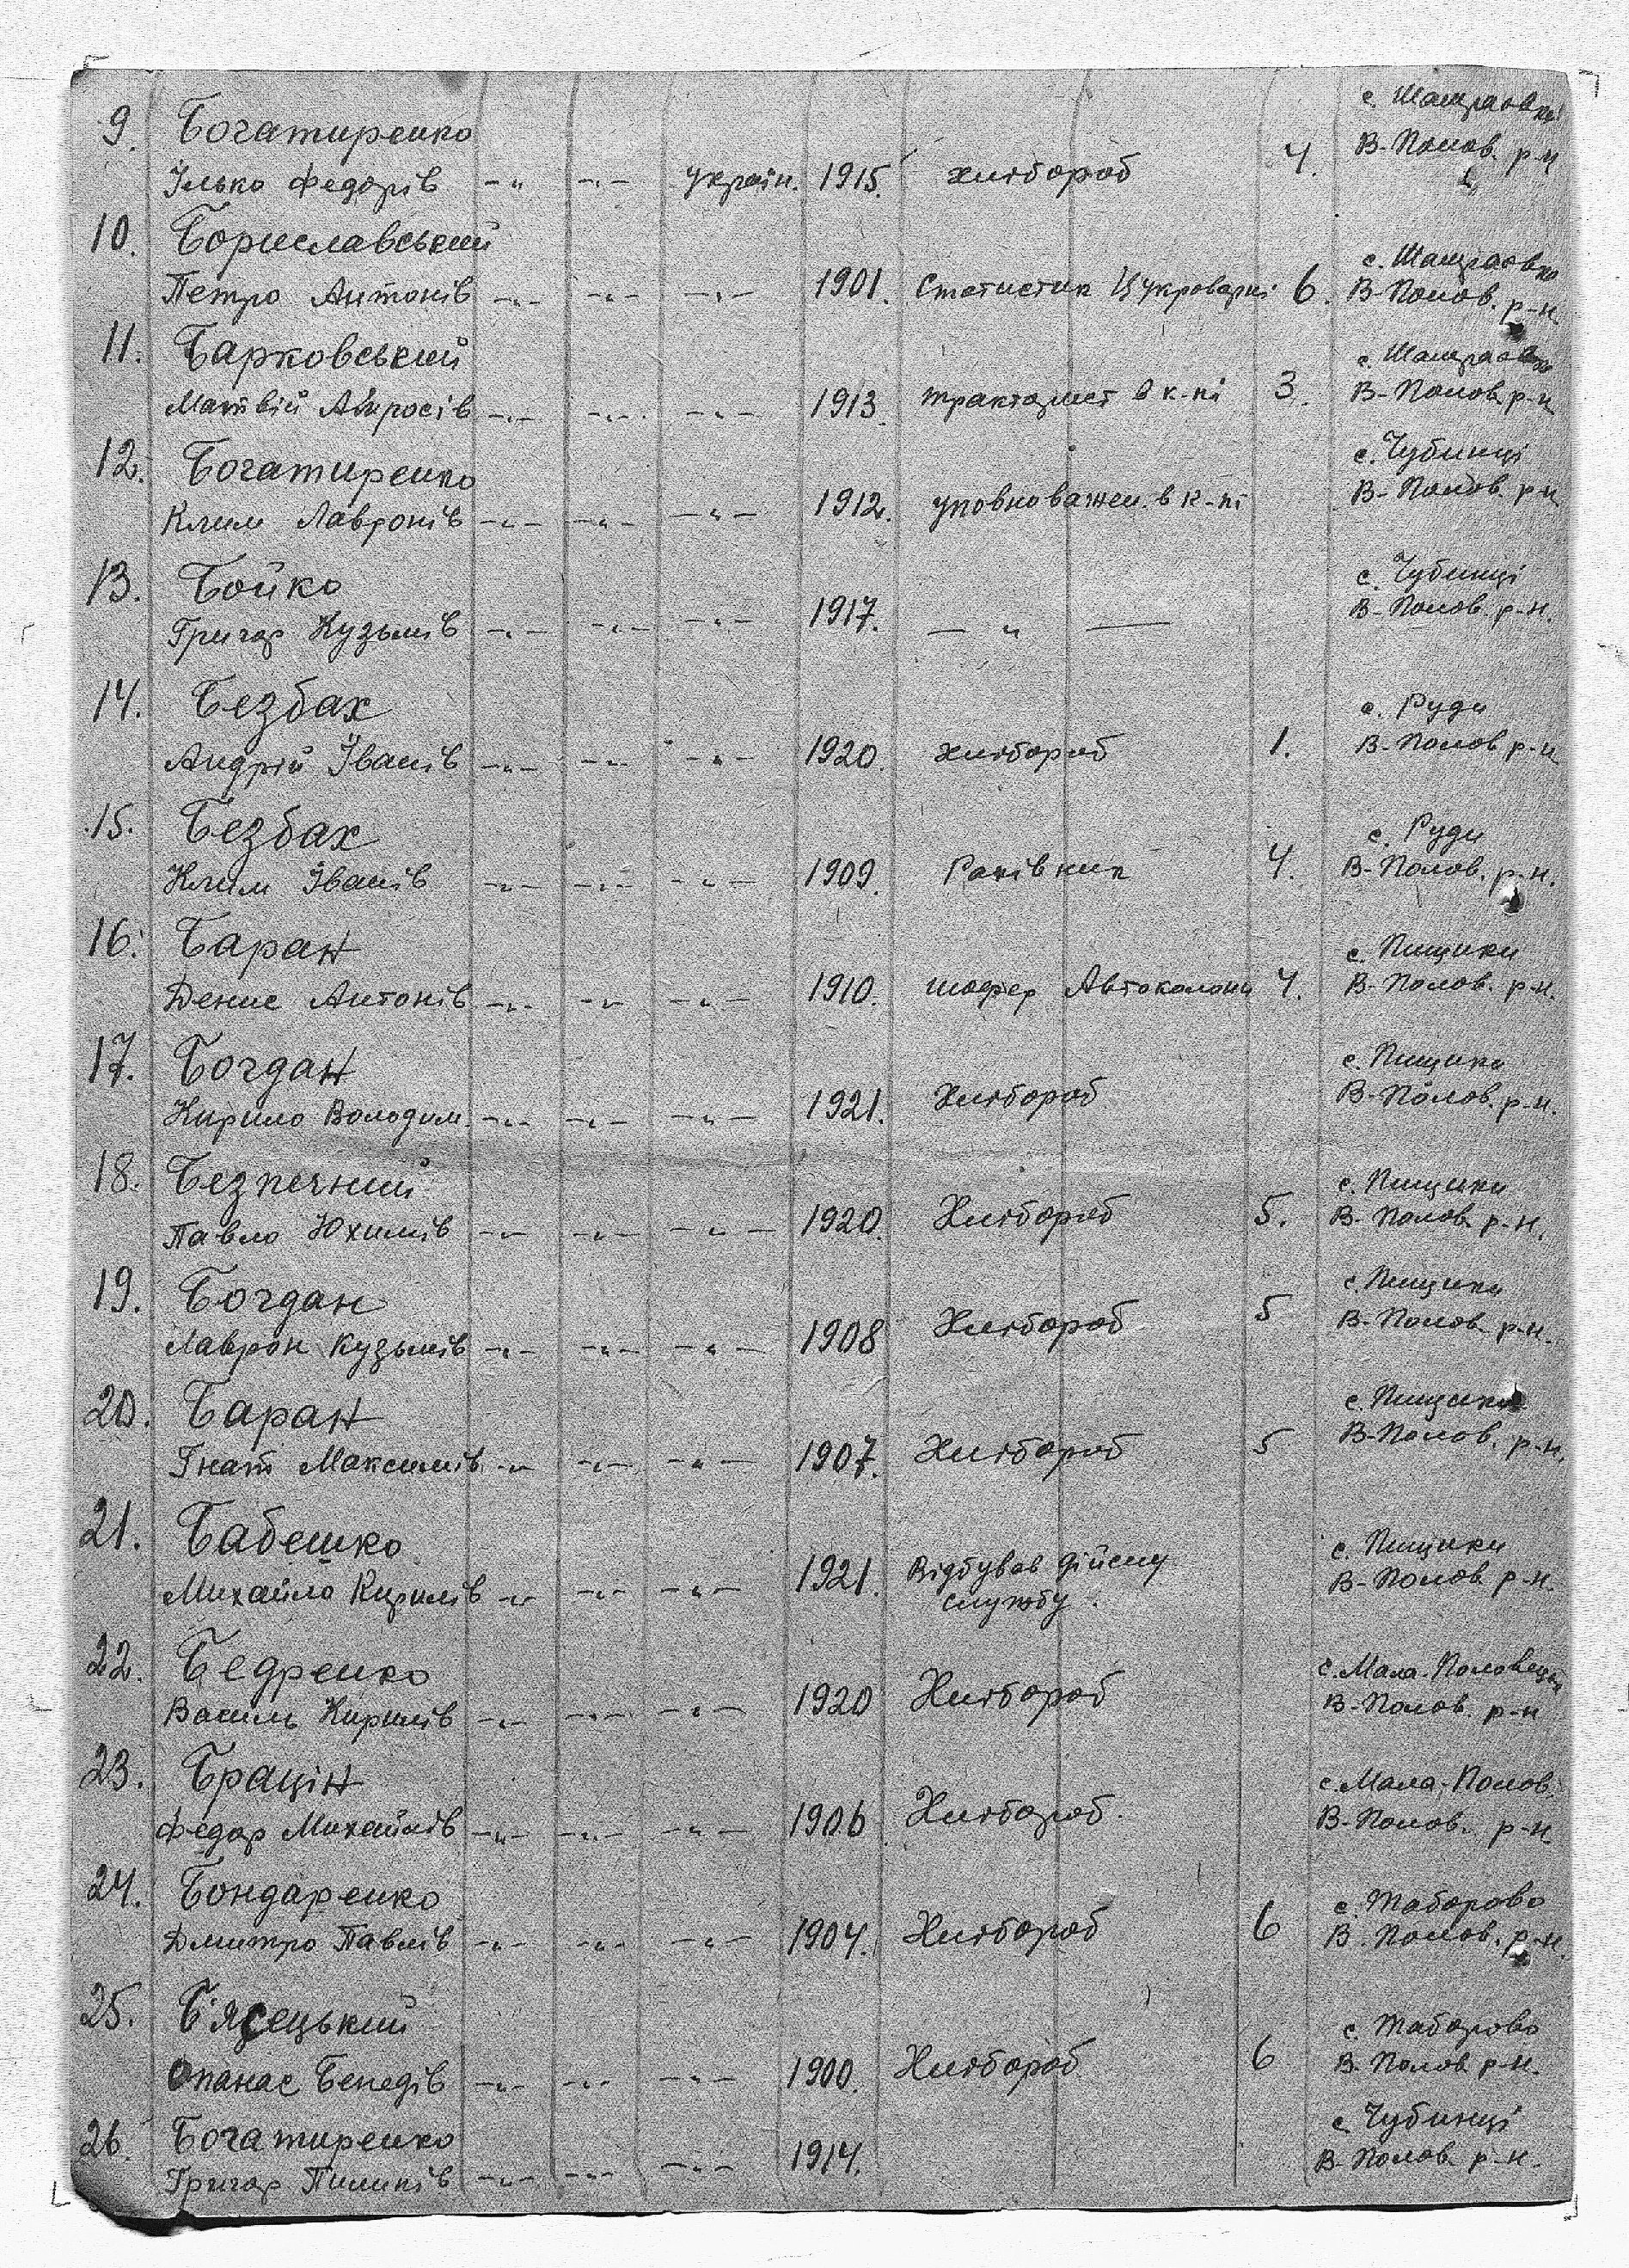 с. Шамраовки
9. Богатиренко В-Полов. р-н
Ілько Федорів -"- -"- Україн. 1915 хлібороб 4.
10. Бориславський с. Шамраовка
Петро Антонів -"- -"- -"- 1901. Статистик Цукроварні 6. В-Полов. р-н
11. Барковський с. Шамраовка
Матвій Амросів -"- -"- -"- 1913 тракторист в к-пі 3. В-Полов р-н
12. Богатиренко с. Чубинці
Клим Лавронів -"- -"- -"- 1912. уповноважен. в к-пі В-Полов. р-н
13. Бойко с. Чубинці
Григор Кузьмів -"- -"- -"- 1917. — " — В-Полов. р-н.
14. Безбах с. Руди
Андрій Іванів -"- -"- -"- 1920. хлібороб 1. В-Полов р-н
15. Безбах с. Руди
Клим Іванів -"- -"- -"- 1909. Раківник 4. В-Полов. р-н.
16. Баран с. Пищики
Денис Антонів -"- -"- -"- 1910. шофер Автоколони 4. В-Полов. р-н.
17. Богдан с. Пищики
Кирило Володим. -"- -"- -"- 1921. Хлібороб В-Полов. р-н.
18. Безпечний с. Пищики
Павло Юхимів -"- -"- -"- 1920. Хлібороб 5. В-Полов. р-н.
19. Богдан с. Пищики
Лаврон Кузьмів -"- -"- -"- 1908 Хлібороб 5 В-Полов. р-н.
20. Баран с. Пищики
Гнат Максимів -"- -"- -"- 1907. Хлібороб 5 В-Полов. р-н.
21. Бабешко с. Пищики
Михайло Кирилів -"- -"- -"- 1921. Відбував дійсну В-Полов р-н.
службу.
22. Бедренко с. Мала-Половецьк
Василь Кирилів -"- -"- -"- 1920 Хлібороб В-Полов. р-н
23. БраціН с. Мала-Полов.
Федор Михайлів -"- -"- -"- 1906 Хлібороб. В-Полов. р-н
24. Бондаренко с. Таборово
Дмитро Павлів -"- -"- -"- 1904. Хлібороб 6 В. Полов. р-н.
25. Б'ясецький с. Таборово
Опанас Бенедів -"- -"- -"- 1900. Хлібороб 6 В. Полов р-н.
26. Богатиренко с. Чубинці
Григор Пилипів -"- -"- -"- 1914. В-Полов. р-н.